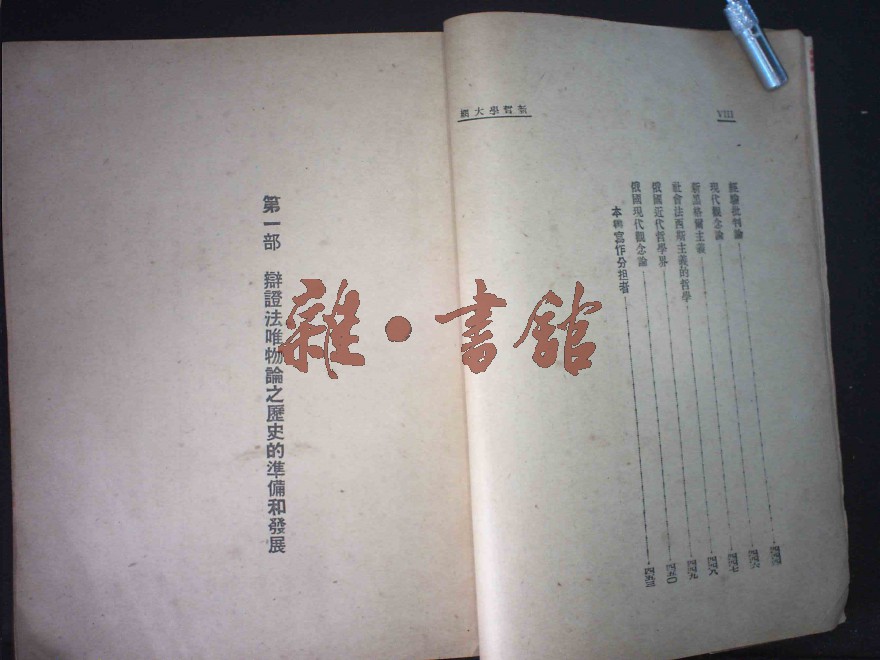 新哲學大綱
VIII
經驗批判論
現代觀念論 四四六
新黑格爾主義 四四七
社會法西斯主義的哲學 四四八
俄國近代哲學界 四四九
俄國現代觀念論 四五〇
本書寫作分担者
第一部 辯證法唯物論之歷史的準備和發展
雜·書館